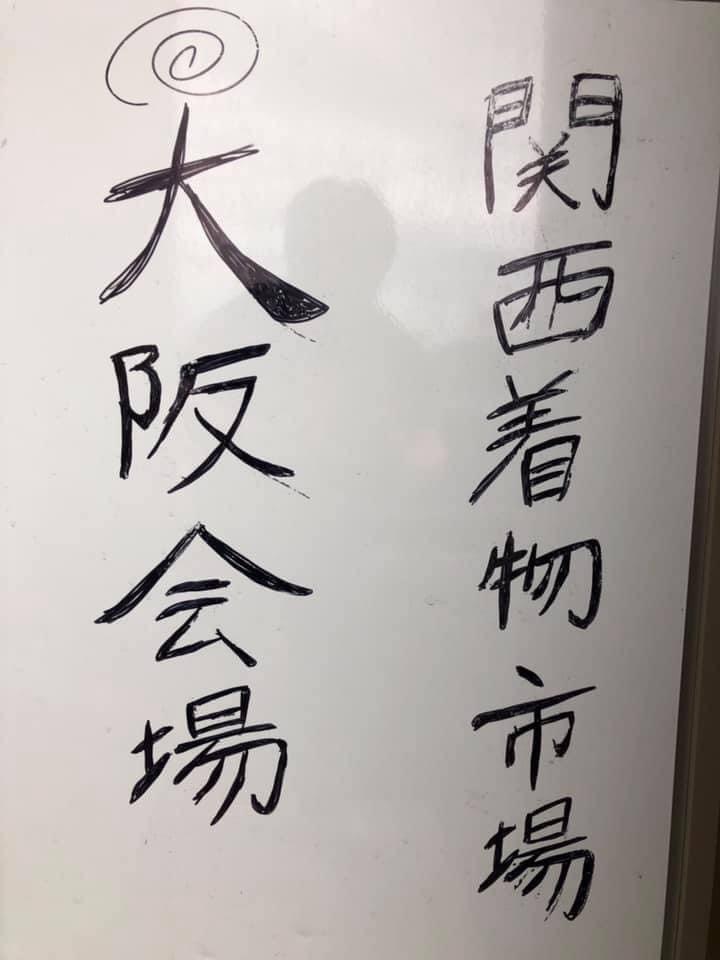 関西着物市場
大阪会場